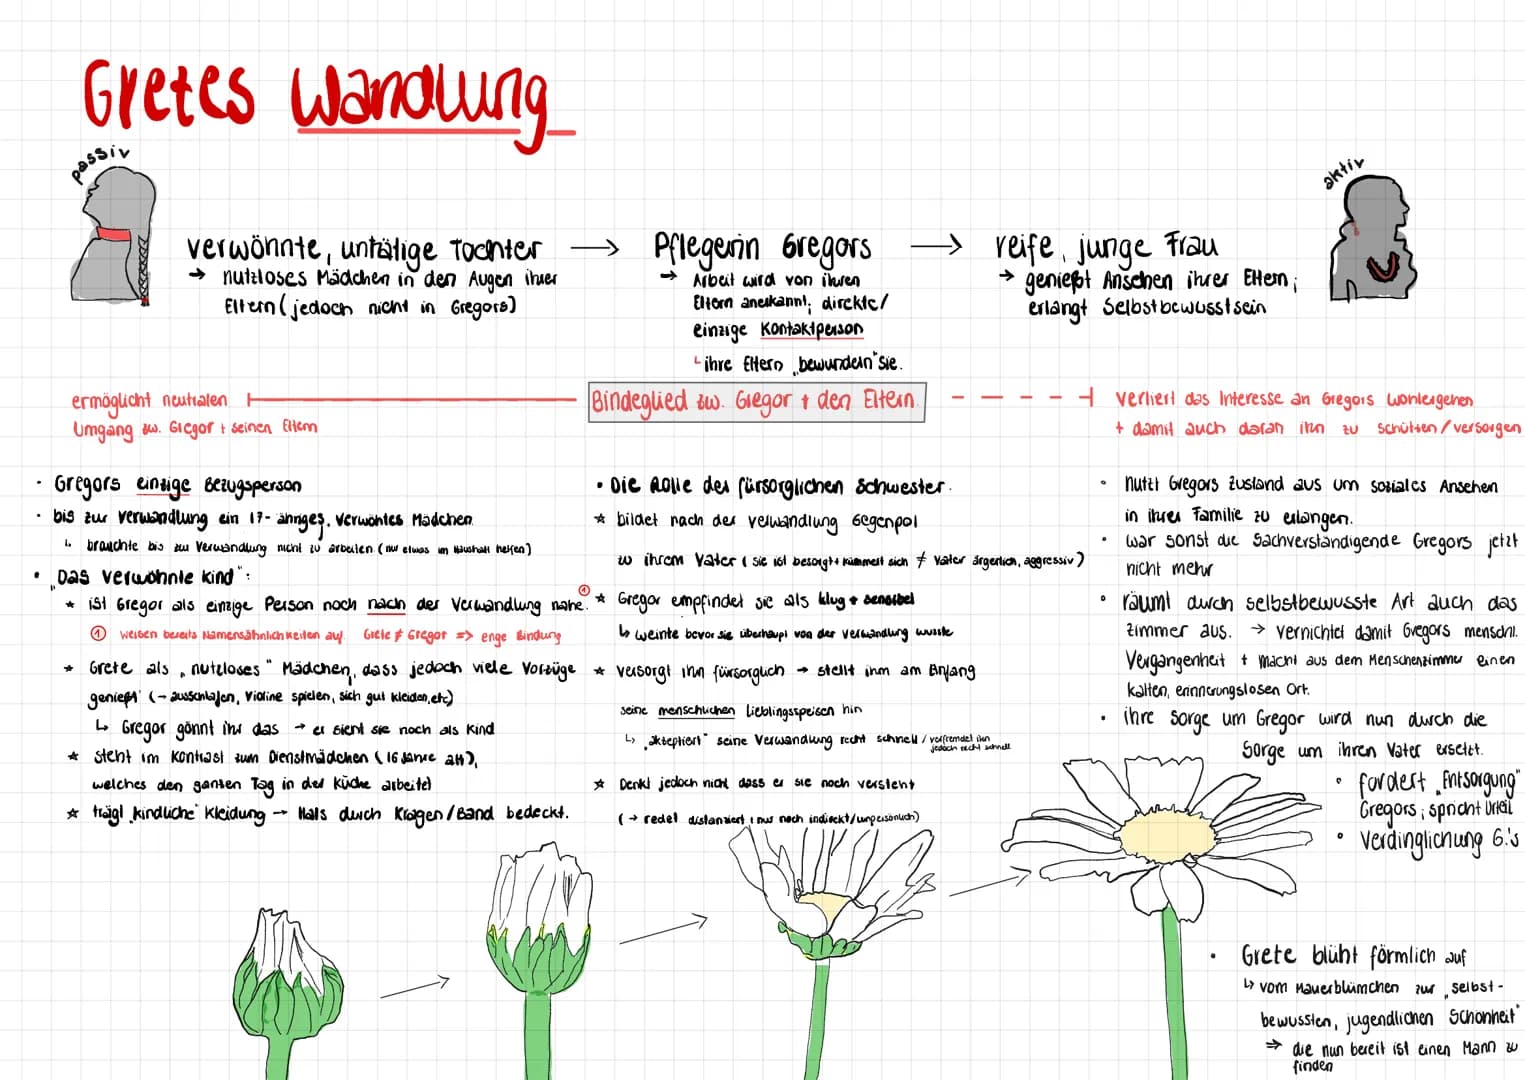 Gretes Wandlung
passiv
aktiv
verwöhnte, untätige Tochter
→ nutzloses Mädchen in den Augen ihrer
Eltern (jedoch nicht in Gregors)
→ Pflegerin Gregors
→ Arbeit wird von ihren
Eltern anerkannt; direkte/
einzige Kontaktperson
↳ ihre Eltern „bewundern" sie.
→ reife, junge Frau
→ genießt Ansehen ihrer Eltern;
erlangt Selbstbewusstsein
ermöglicht neutralen
Umgang zw. Gregor + seinen Eltern
Bindeglied zw. Gregor + den Eltern.
verliert das Interesse an Gregors Wohlergehen
+ damit auch daran ihn zu schützen/versorgen
• Gregors einzige Bezugsperson
• bis zur Verwandlung ein 17-ähriges, verwöhntes Mädchen.
↳ brauchte bis zur Verwandlung nicht zu arbeiten (nur etwas im Haushalt helfen)
• „Das verwöhnte Kind":
* ist Gregor als einzige Person noch nach der Verwandlung nahe. ①
① weisen bereits Namensähnlichkeiten auf. Grete ≠ Gregor => enge Bindung
* Grete als „nutzloses" Mädchen, dass jedoch viele Vorzüge
genießt (→ ausschlafen, Violine spielen, sich gut kleiden, etc)
↳ Gregor gönnt ihr das → er sieht sie noch als Kind
* steht im Kontrast zum Dienstmädchen (16 Jahre alt),
welches den ganzen Tag in der Küche arbeitet
* trägt „kindliche" Kleidung → Hals durch Kragen/Band bedeckt.
• Die Rolle der fürsorglichen Schwester.
* bildet nach der Verwandlung Gegenpol
zu ihrem Vater (sie ist besorgt + kümmert sich ≠ Vater ärgerlich, aggressiv)
* Gregor empfindet sie als klug + sensibel
↳ weinte bevor sie überhaupt von der Verwandlung wusste
* versorgt ihn fürsorglich → stellt ihm am Anfang
seine menschlichen Lieblingsspeisen hin
↳ „akzeptiert" seine Verwandlung recht schnell / verfremdet ihn
jedoch recht schnell
* Denkt jedoch nicht dass er sie noch versteht
(→ redet distanziert, nur noch indirekt/unpersönlich)
• nutzt Gregors Zustand aus um soziales Ansehen
in ihrer Familie zu erlangen.
• war sonst die Sachverständigende Gregors jetzt
nicht mehr
• räumt durch selbstbewusste Art auch das
Zimmer aus. → vernichtet damit Gregors menschl.
Vergangenheit + macht aus dem Menschenzimmer einen
kalten, erinnerungslosen Ort.
• ihre Sorge um Gregor wird nun durch die
Sorge um ihren Vater ersetzt.
• fordert „Entsorgung"
Gregors; spricht Urteil
• Verdinglichung G.'s
• Grete blüht förmlich auf
↳ vom Mauerblümchen zur „selbst-
bewussten, jugendlichen Schönheit"
⇒ die nun bereit ist einen Mann zu
finden